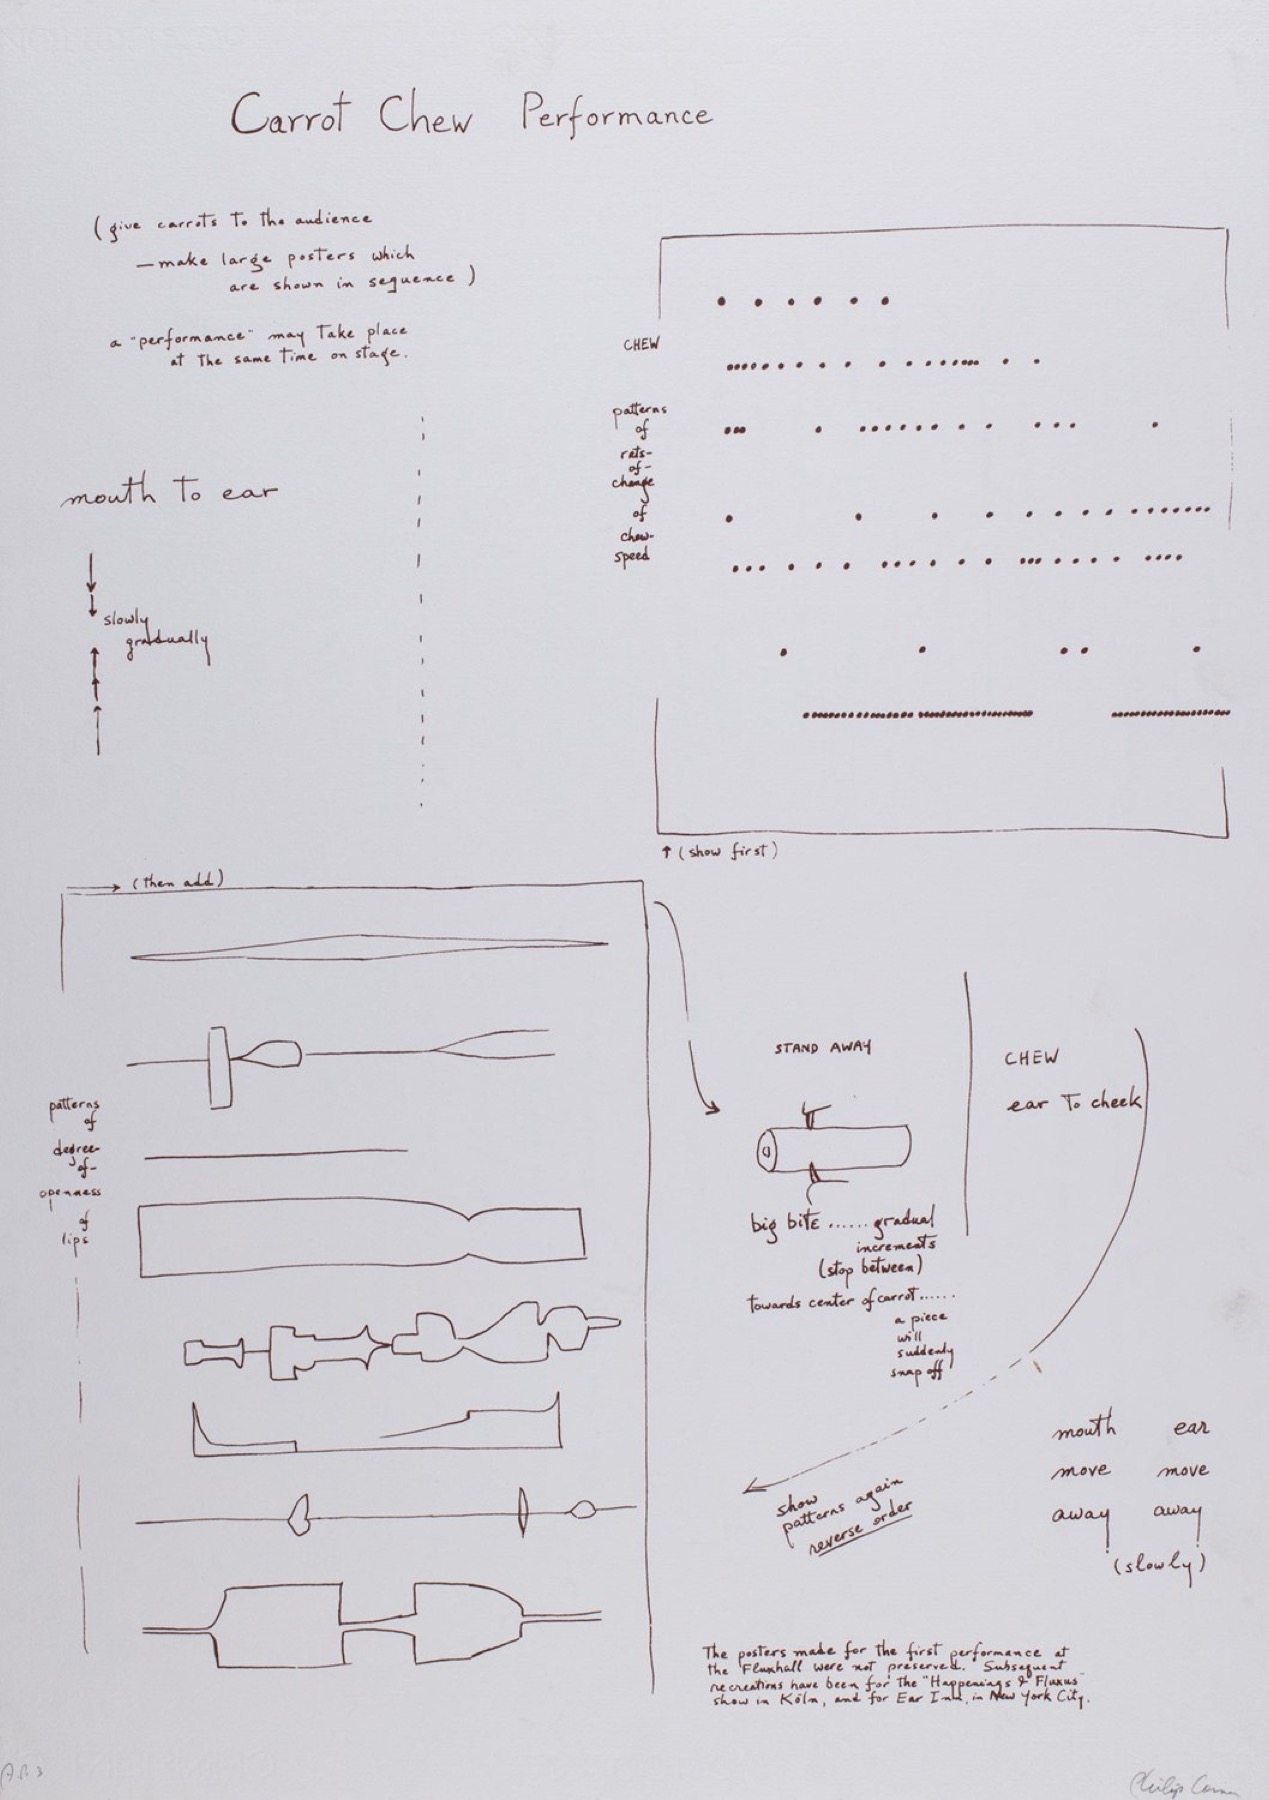 Carrot Chew Performance
(give carrots to the audience
—make large posters which
are shown in sequence)
a "performance" may take place
at the same time on stage.
mouth to ear
slowly
gradually
CHEW
patterns
of
rats-
of-
change
of
chew-
speed
↑ (show first)
→ (then add)
patterns
of
degree-
of-
openness
of
lips
STAND AWAY
big bite ...... gradual
increments
(stop between)
towards center of carrot......
a piece
will
suddenly
snap off
CHEW
ear to cheek
show
patterns again
reverse order
mouth ear
move move
away away
(slowly)
The posters made for the first performance at
the Fluxhall were not preserved. Subsequent
recreations have been for the "Happenings & Fluxus"
show in Köln, and for Ear Inn, in New York City.
Philip Corner